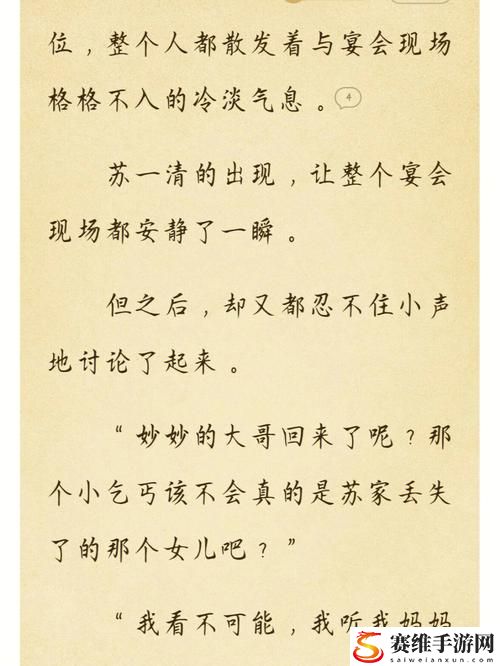 位，整个人都散发着与宴会现场
格格不入的冷淡气息。 4
苏一清的出现，让整个宴会
现场都安静了一瞬。
但之后，却又都忍不住小声
地讨论了起来。
“妙妙的大哥回来了呢？那
个小乞丐该不会真的是苏家丢失
了的那个女儿吧？”
“我看不可能，我听我妈妈
赛维手游网
saiweianxun.com